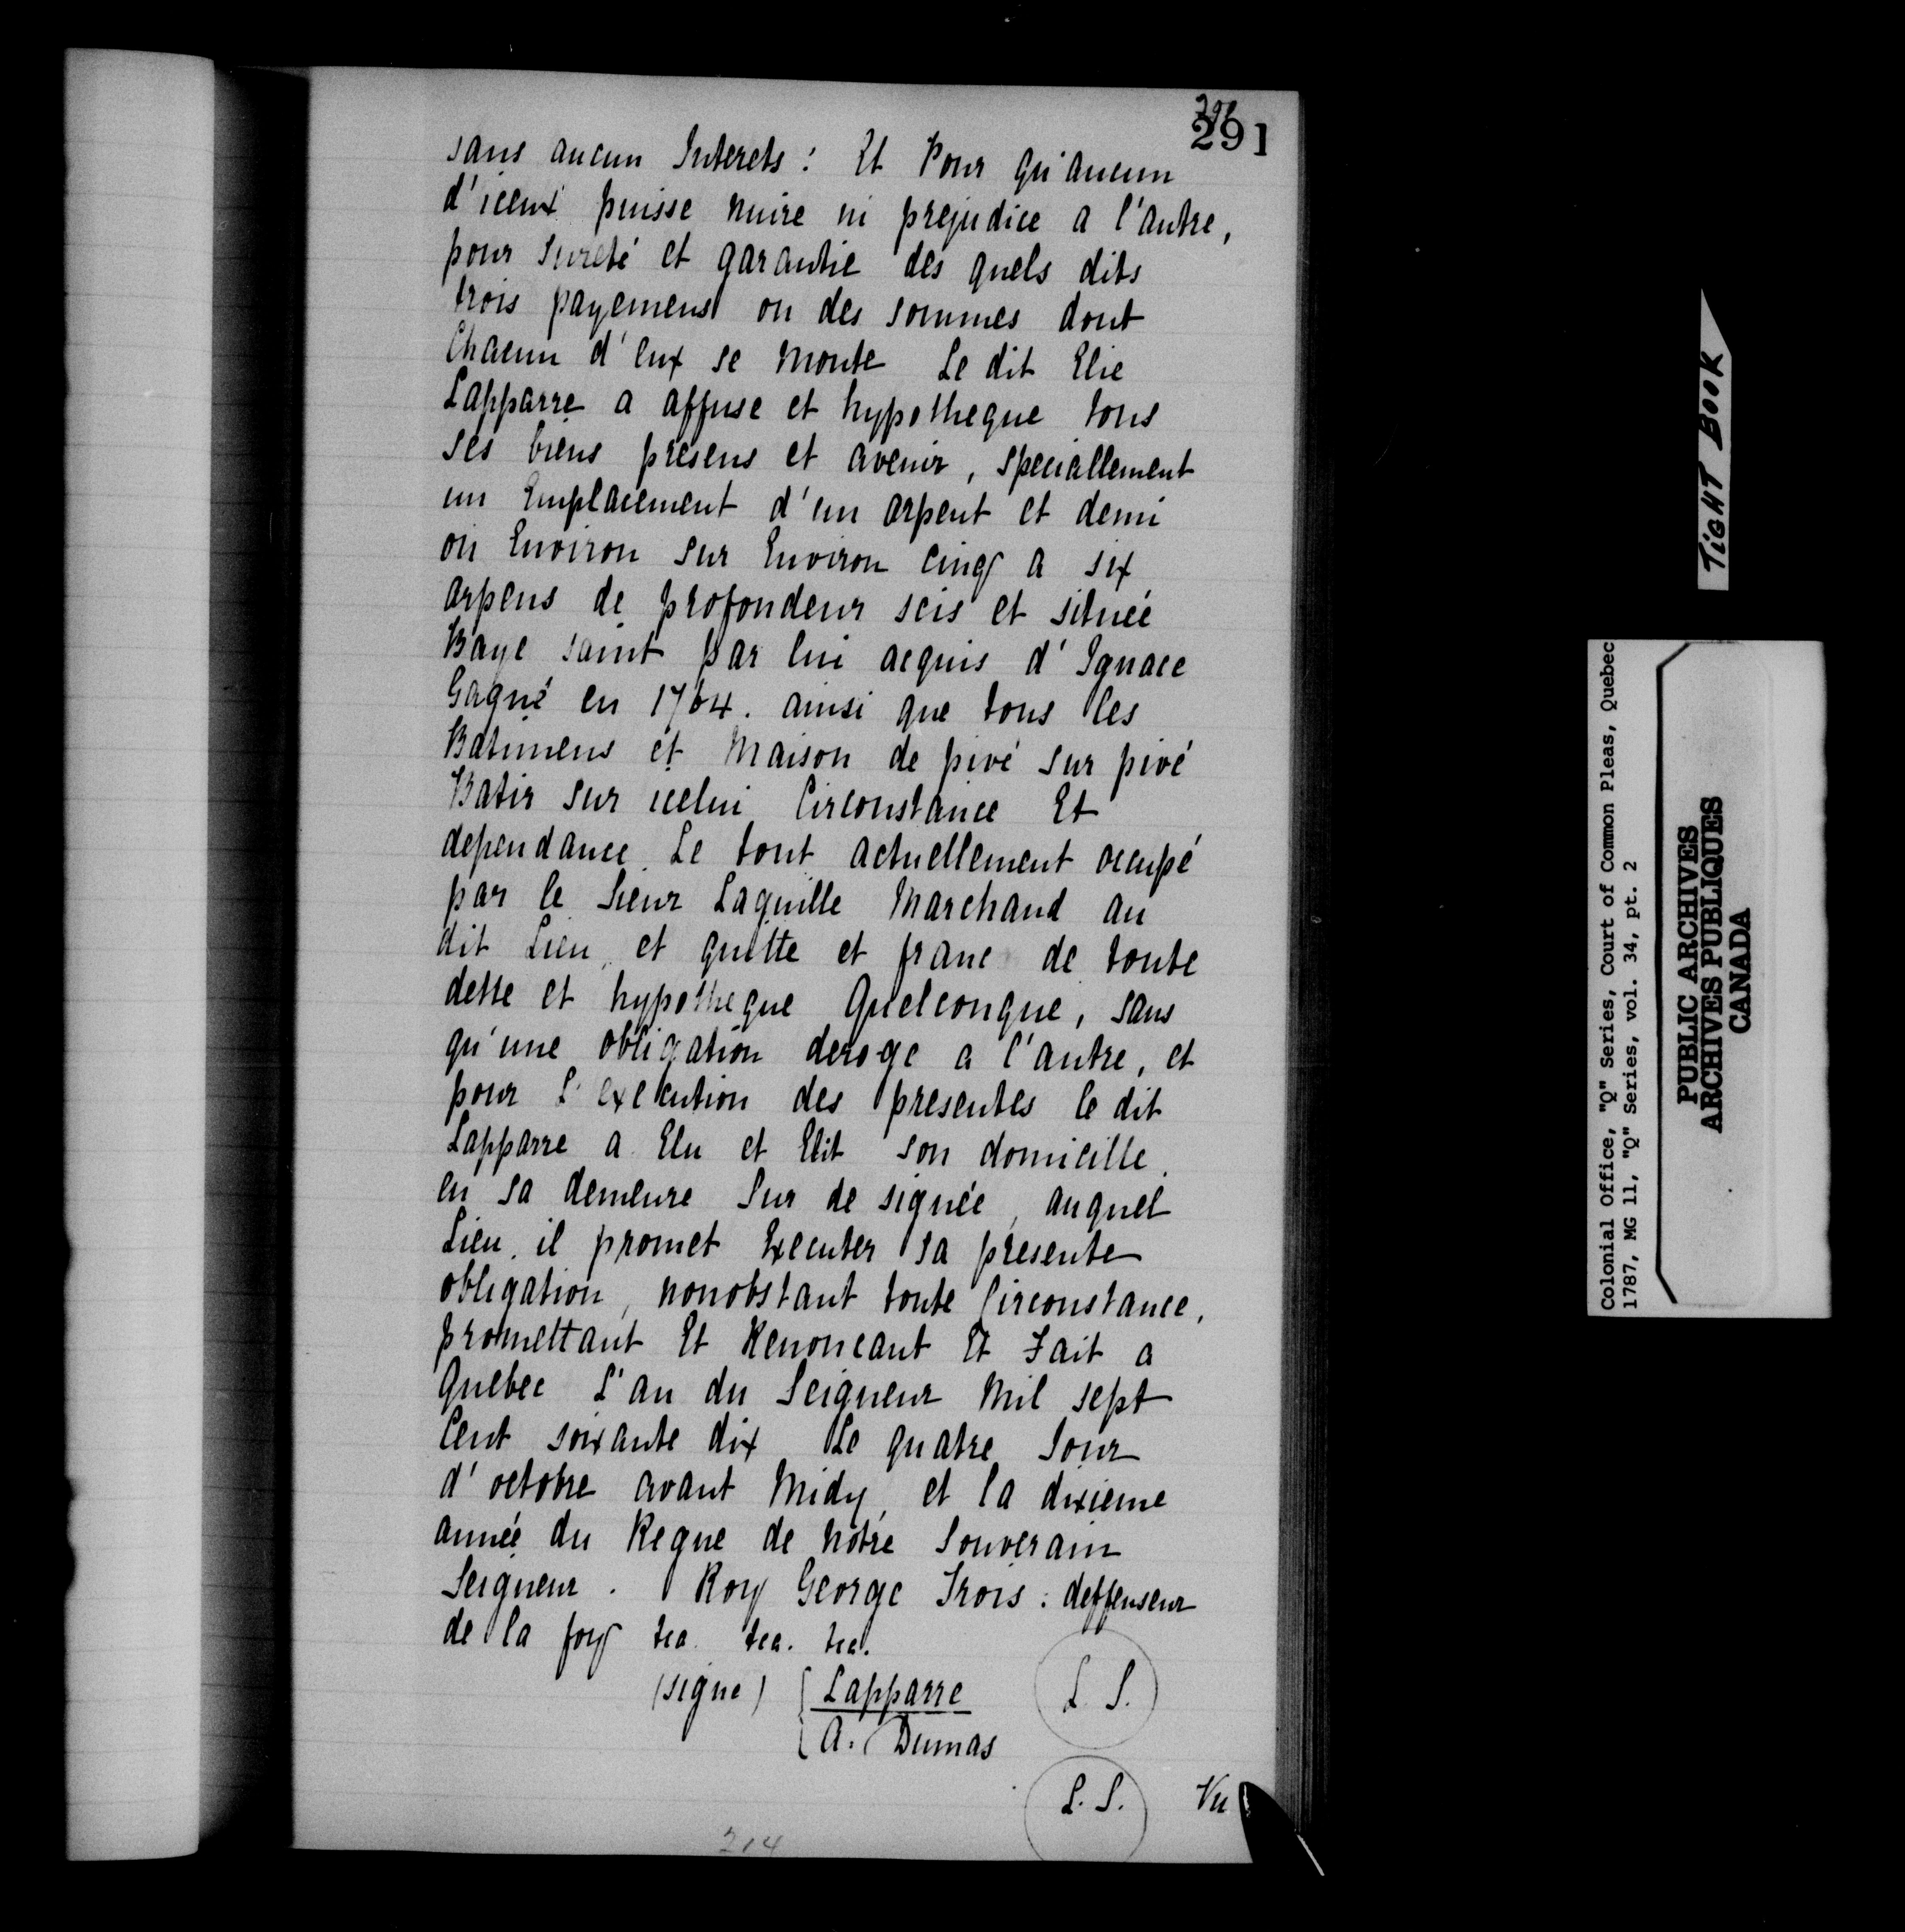 291
sans aucun Interets : Et Pour qu'aucun
d'iceux puisse nuire ni prejudice a l'autre,
pour sureté et garantie des quels dits
trois payemens ou des sommes dont
Chacun d'eux se monte Le dit Elie
Lapparre a affuse et hypotheque tous
ses biens presens et avenir, speciallement
un Emplacement d'un arpent et demi
ou Environ sur Environ cinq a six
arpens de profondeur scis et situéé
Baye saint par lui acquis d'Ignace
Gagné en 1764. ainsi que tous les
Batimens et Maison de pivé sur pivé
Batir sur icelui Circonstance Et
dependance. Le tout actuellement occupé
par le Sieur Laquille Marchand au
dit Lieu, et quitte et franc de toute
dette et hypotheque Quelconque, sans
qu'une obligation deroge a l'autre, et
pour L'execution des presentes le dit
Lapparre a Elu et Elit son domicille.
en sa demeure Sur de signéé, auquel
Lieu. il promet Executer sa presente
obligation, nonobstant toute Circonstance,
promettant Et Renoncant Et Fait a
Quebec L'an du Seigneur Mil sept
Cent soixante dix Le quatre Jour
d'octobre avant Midy, et la dixieme
année du Regne de Nôtre Souverain
Seigneur. Roy George Trois : deffenseur
de la foy &ca. &ca. &ca.
(signe) Lapparre L. S.
A. Dumas
L. S. Vu
214
TIGHT BOOK
Colonial Office, "Q" Series, Court of Common Pleas, Quebec
1787, MG 11, "Q" Series, vol. 34, pt. 2
PUBLIC ARCHIVES
ARCHIVES PUBLIQUES
CANADA